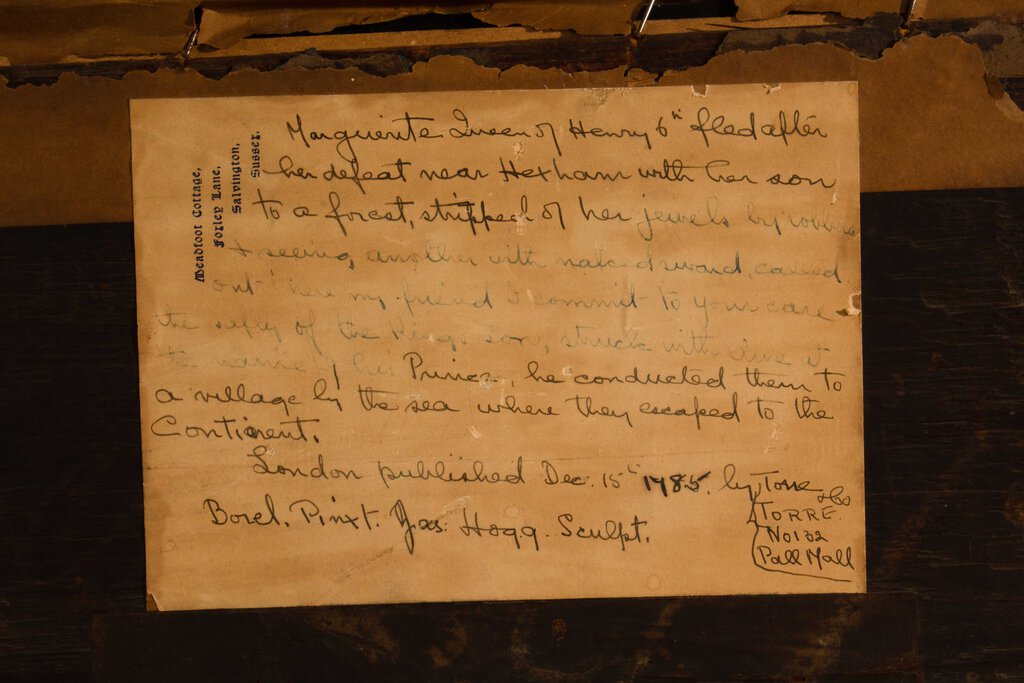 Meadfoot Cottage,
Foxley Lane,
Salvington,
Sussex.
Marguerite Queen of Henry 6th fled after
her defeat near Hexham with her son
to a forest, stripped of her jewels by
& seeing, another with naked sword, called
out here my friend I commit to your care
the safty of the Kings son, struck with at
the name of his Prince, he conducted them to
a village by the sea where they escaped to the
Continent.
London published Dec. 15th 1785. by Torre & Co
TORRE.
No 132
Pall Mall
Borel. Pinxt. Jas. Hogg. Sculpt.